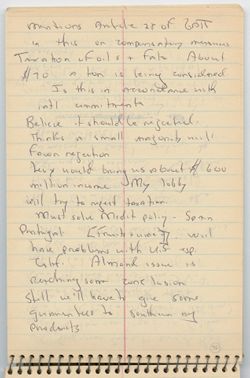 mentions Article 28 of GATT
in this on compensatory measures
Taxation of oils + fats About
$70 a ton is being considered
Is this in accordance with
int'l commitments
Believe it should be rejected.
Thinks a small majority will
favor rejection
Levy would bring us about $ 600
million income My lobby
will try to reject taxation.
Must solve Medit policy - Spain
Portugal (Fruit + wine), will
have problems with U.S. esp
Calif. Almond issue is
reaching some conclusion
Still we'll have to give some
guarantees to southern
products